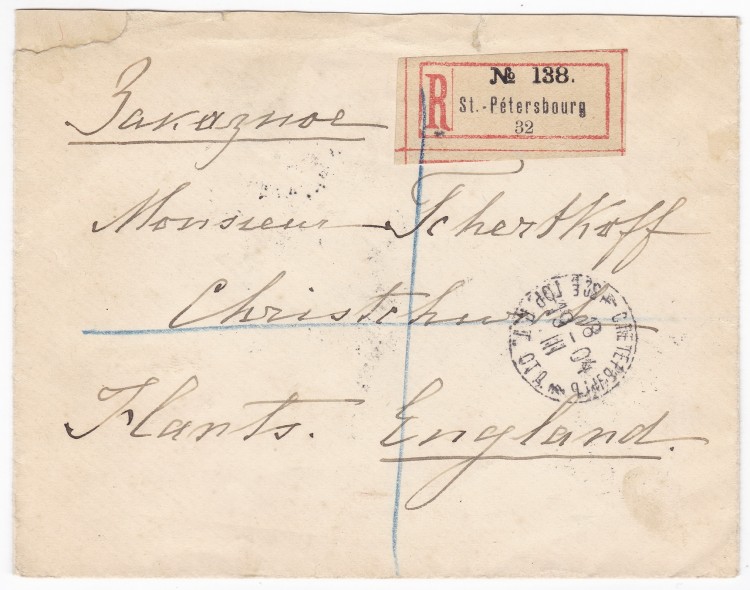 № 138.
R St.-Pétersbourg
32
Заказное
Monsieur Tchertkoff
Christchurch
Hants. England.
С.ПЕТЕРБУРГЪ
18 III 04